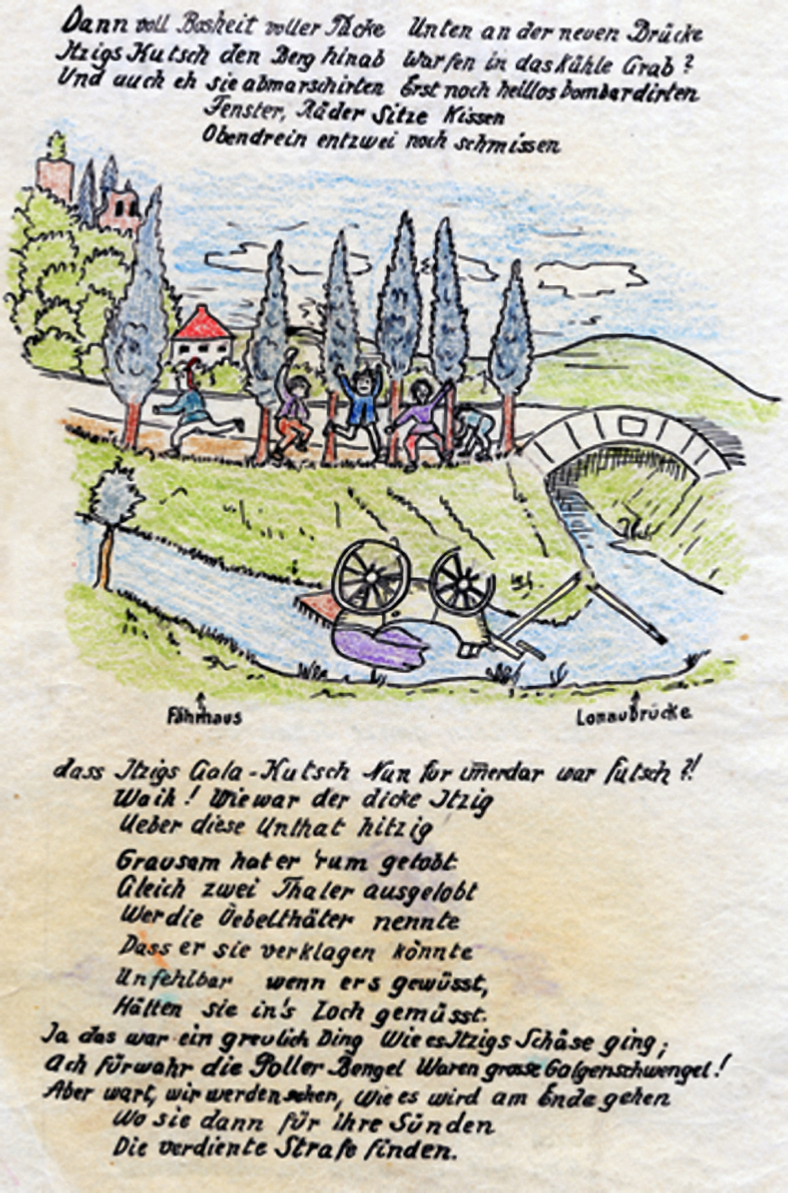 Dann voll Bosheit voller Tücke Unten an der neuen Brücke
Itzigs Kutsch den Berg hinab Warfen in das Kühle Grab?
Und auch eh sie abmarschirten Erst noch heillos bombardirten
Fenster, Räder Sitze Kissen
Obendrein entzwei noch schmissen
Fährhaus
Lonaubrücke
dass Itzigs Gala-Kutsch Nun for im̅erdar war futsch?!
Waih! Wie war der dicke Itzig
Ueber diese Unthat hitzig
Grausam hat er 'rum getobt
Gleich zwei Thaler ausgelobt
Wer die Uebelthäter nennte
Dass er sie verklagen könnte
Unfehlbar wenn ers gewüsst,
Hätten sie in's Loch gemüsst.
Ja das war ein greulich Ding Wie es Itzigs Schäse ging;
Ach fürwahr die Poller Bengel Waren grosse Galgenschwengel!
Aber wart, wir werden sehen, Wie es wird am Ende gehen
Wo sie dann für ihre Sünden
Die verdiente Strafe finden.